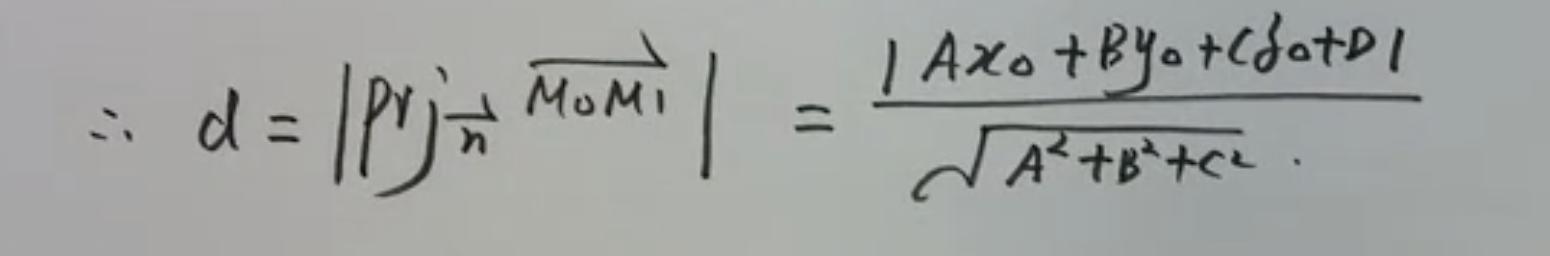 ∴ d = |Prj_{\vec{n}} \overrightarrow{M_0M_1}| = \frac{|Ax_0+By_0+Cz_0+D|}{\sqrt{A^2+B^2+C^2}}.